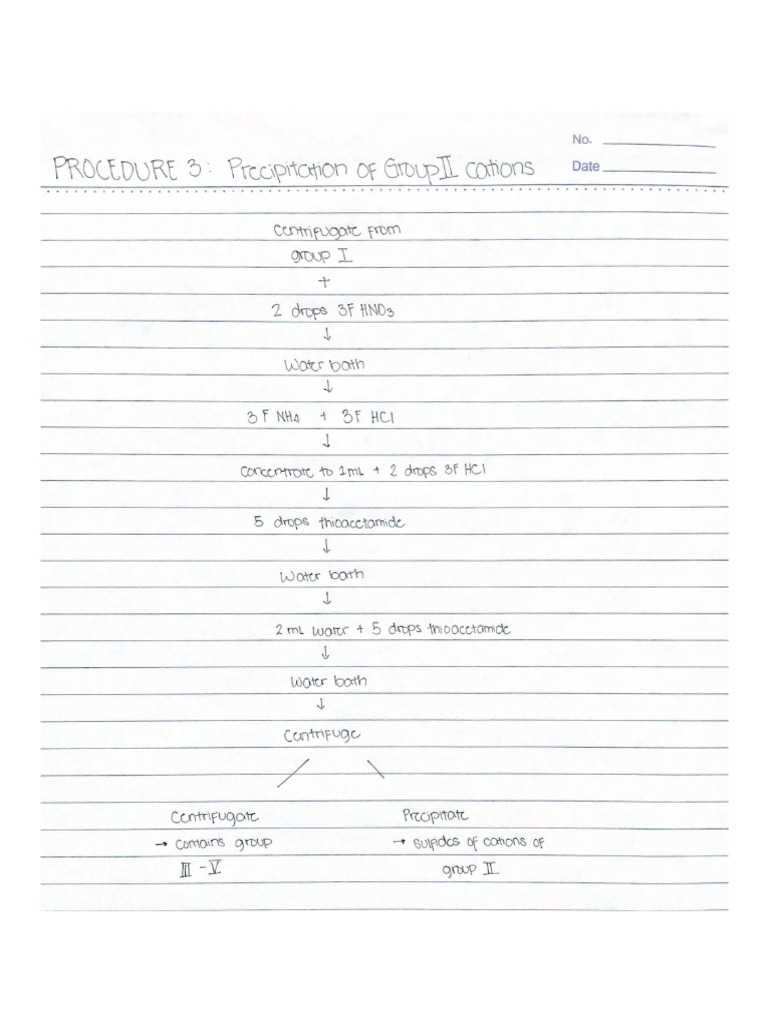 No.
PROCEDURE 3: Precipitation of Group II cations
Date
Centrifugate from
group I
+
2 drops 3F HNO3
↓
Water bath
↓
3F NH4 + 3F HCl
↓
Concentrate to 1mL + 2 drops 3F HCl
↓
5 drops thioacetamide
↓
Water bath
↓
2 mL water + 5 drops thioacetamide
↓
Water bath
↓
Centrifuge
Centrifugate Precipitate
→ contains group → sulfides of cations of
III - V group II